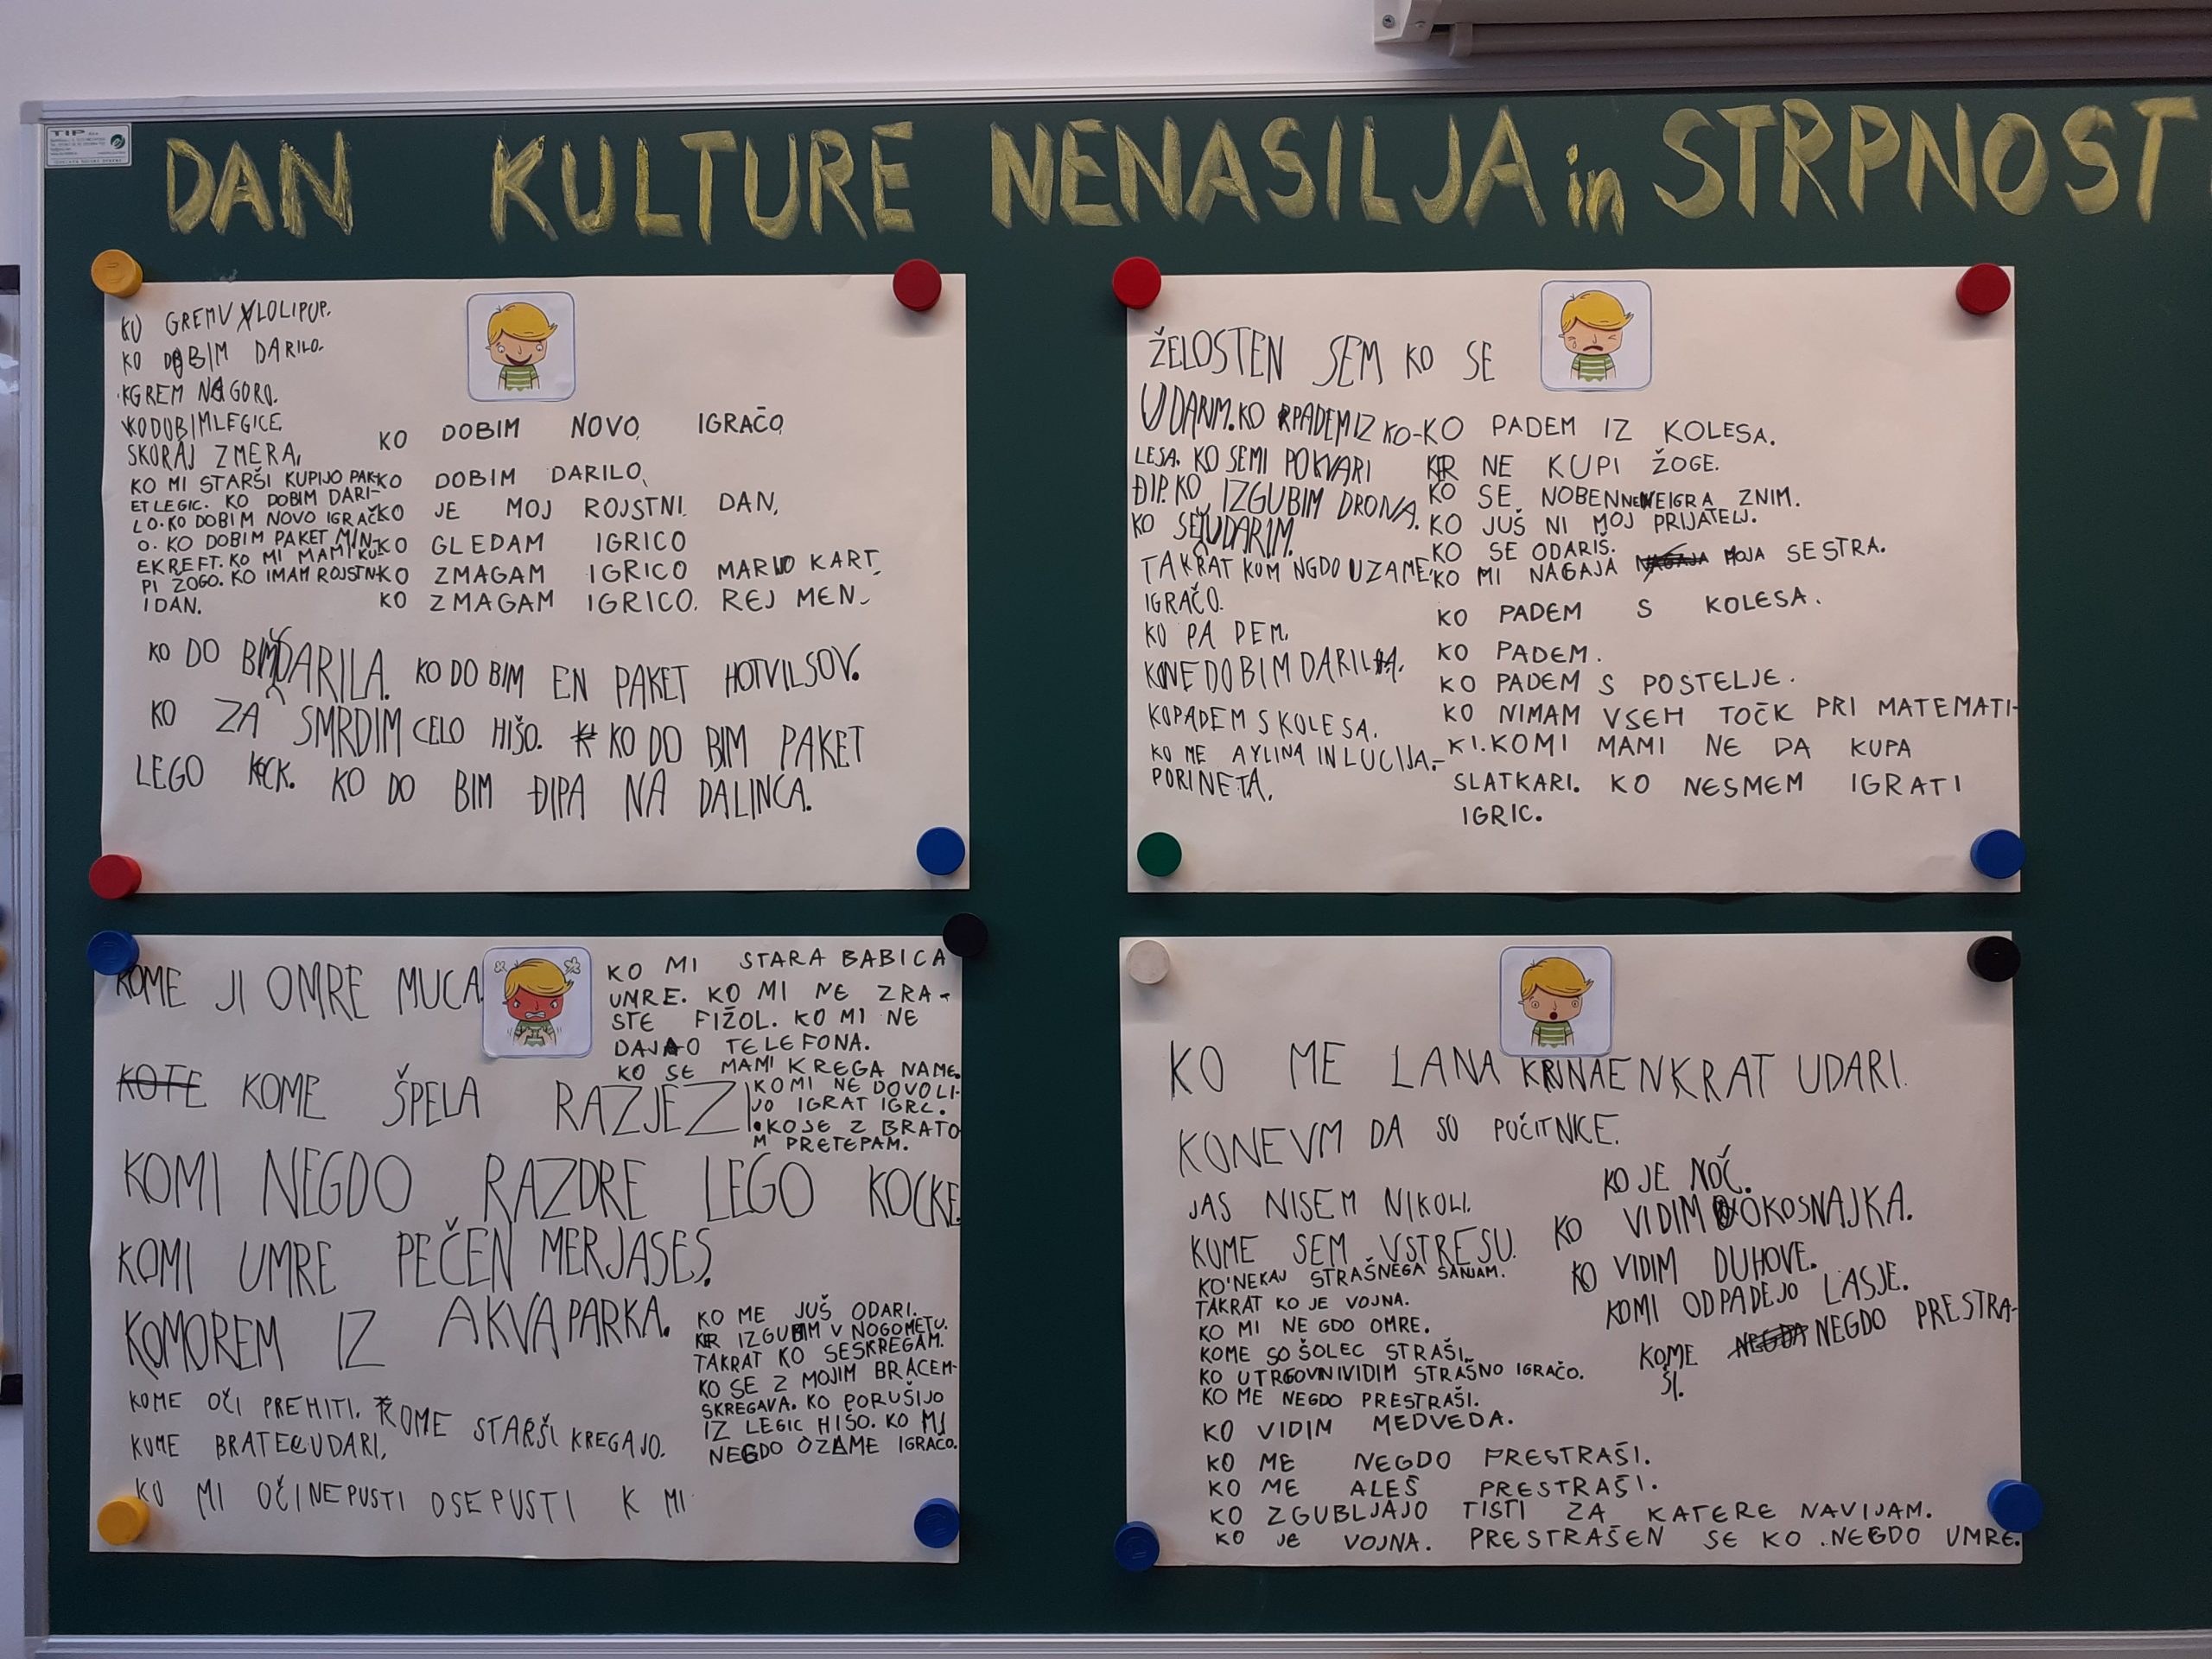 TIP
DAN KULTURE NENASILJA in STRPNOST
KO GREMV LOLIPUP.
KO DOBIM DARILO.
KGREM NAGORO.
KODOBIMLEGICE,
SKORAJ ZMERA,
KO MI STARŠI KUPIJO PAK-
ETLEGIC. KO DOBIM DARI-
LO.KO DOBIM NOVO IGRAČK
O. KO DOBIM PAKET MIN-
EKREFT.KO MI MAMI KU-
PI ZOGO.KO IMAM ROJSTN
I DAN.
KO DOBIM NOVO IGRAČO,
KO DOBIM DARILO,
KO JE MOJ ROJSTNI DAN,
KO GLEDAM IGRICO
KO ZMAGAM IGRICO MARIO KART,
KO ZMAGAM IGRICO. REJ MEN-
KO DO BIM DARILA. KO DO BIM EN PAKET HOTVILSOV.
KO ZA SMRDIM CELO HIŠO. KO DO BIM PAKET
LEGO KOCK. KO DO BIM ĐIPA NA DALINCA.
ŽELOSTEN SEM KO SE
UDARIM.KO PADEMIZ KO-
LESA. KO SEMI POKVARI
ĐIP.KO IZGUBIM DRONA.
KO SE UDARIM.
TAKRAT KOM NGDO UZAME
IGRAČO.
KO PA DEM.
KONE DOBIM DARILA.
KOPADEM S KOLESA.
KO ME AYLINA IN LUCIJA-
PORINETA.
KO PADEM IZ KOLESA.
KR NE KUPI ŽOGE.
KO SE NOBEN NE IGRA ZNIM.
KO JUŠ NI MOJ PRIJATELJ.
KO SE ODARIŠ.
KO MI NAGAJA MOJA SESTRA.
KO PADEM S KOLESA.
KO PADEM.
KO PADEM S POSTELJE.
KO NIMAM VSEH TOČK PRI MATEMATI-
KI.KOMI MAMI NE DA KUPA
SLATKARI. KO NESMEM IGRATI
IGRIC.
KOME JI OMRE MUCA
KOTE KOME ŠPELA RAZJEZI
KOMI NEGDO RAZDRE LEGO KOCKE.
KOMI UMRE PEČEN MERJASES.
KOMOREM IZ AKVAPARKA.
KOME OČI PREHITI. KOME STARŠI KREGAJO.
KOME BRATECUDARI,
KO MI OČINEPUSTI DSEPUSTI K MI
KO MI STARA BABICA
UMRE. KO MI NE ZRA-
STE FIŽOL. KO MI NE
DAJAO TELEFONA.
KO SE MAMI KREGA NAME.
KOMI NE DOVOLI-
JO IGRAT IGRC.
.KOSE Z BRATO
M PRETEPAM.
KO ME JUŠ ODARI.
KR IZGUBIM V NOGOMETU.
TAKRAT KO SESKREGAM.
KO SE Z MOJIM BRACEM-
SKREGAVA. KO PORUŠIJO
IZ LEGIC HIŠO. KO MI
NEGDO OZAME IGRAČO.
KO ME LANA KRNAENKRAT UDARI.
KONEVM DA SO POČITNICE.
JAS NISEM NIKOLI.
KOME SEM VSTRESU.
KO NEKAJ STRAŠNEGA SANJAM.
TAKRAT KO JE VOJNA.
KO MI NE GDO OMRE.
KOME SO ŠOLEC STRAŠI.
KO UTRGOVINIVIDIM STRAŠNO IGRAČO.
KO ME NEGDO PRESTRAŠI.
KO VIDIM MEDVEDA.
KO ME NEGDO PRESTRAŠI.
KO ME ALEŠ PRESTRAŠI.
KO ZGUBLJAJO TISTI ZA KATERE NAVIJAM.
KO Je VOJNA. PRESTRAŠEN SE KO .NEGDO UMRE.
KO JE NOČ.
KO VIDIM OKOSNAJKA.
KO VIDIM DUHOVE.
KOMI ODPADEJO LASJE.
KOME NEGDO PRESTRA-
ŠI.